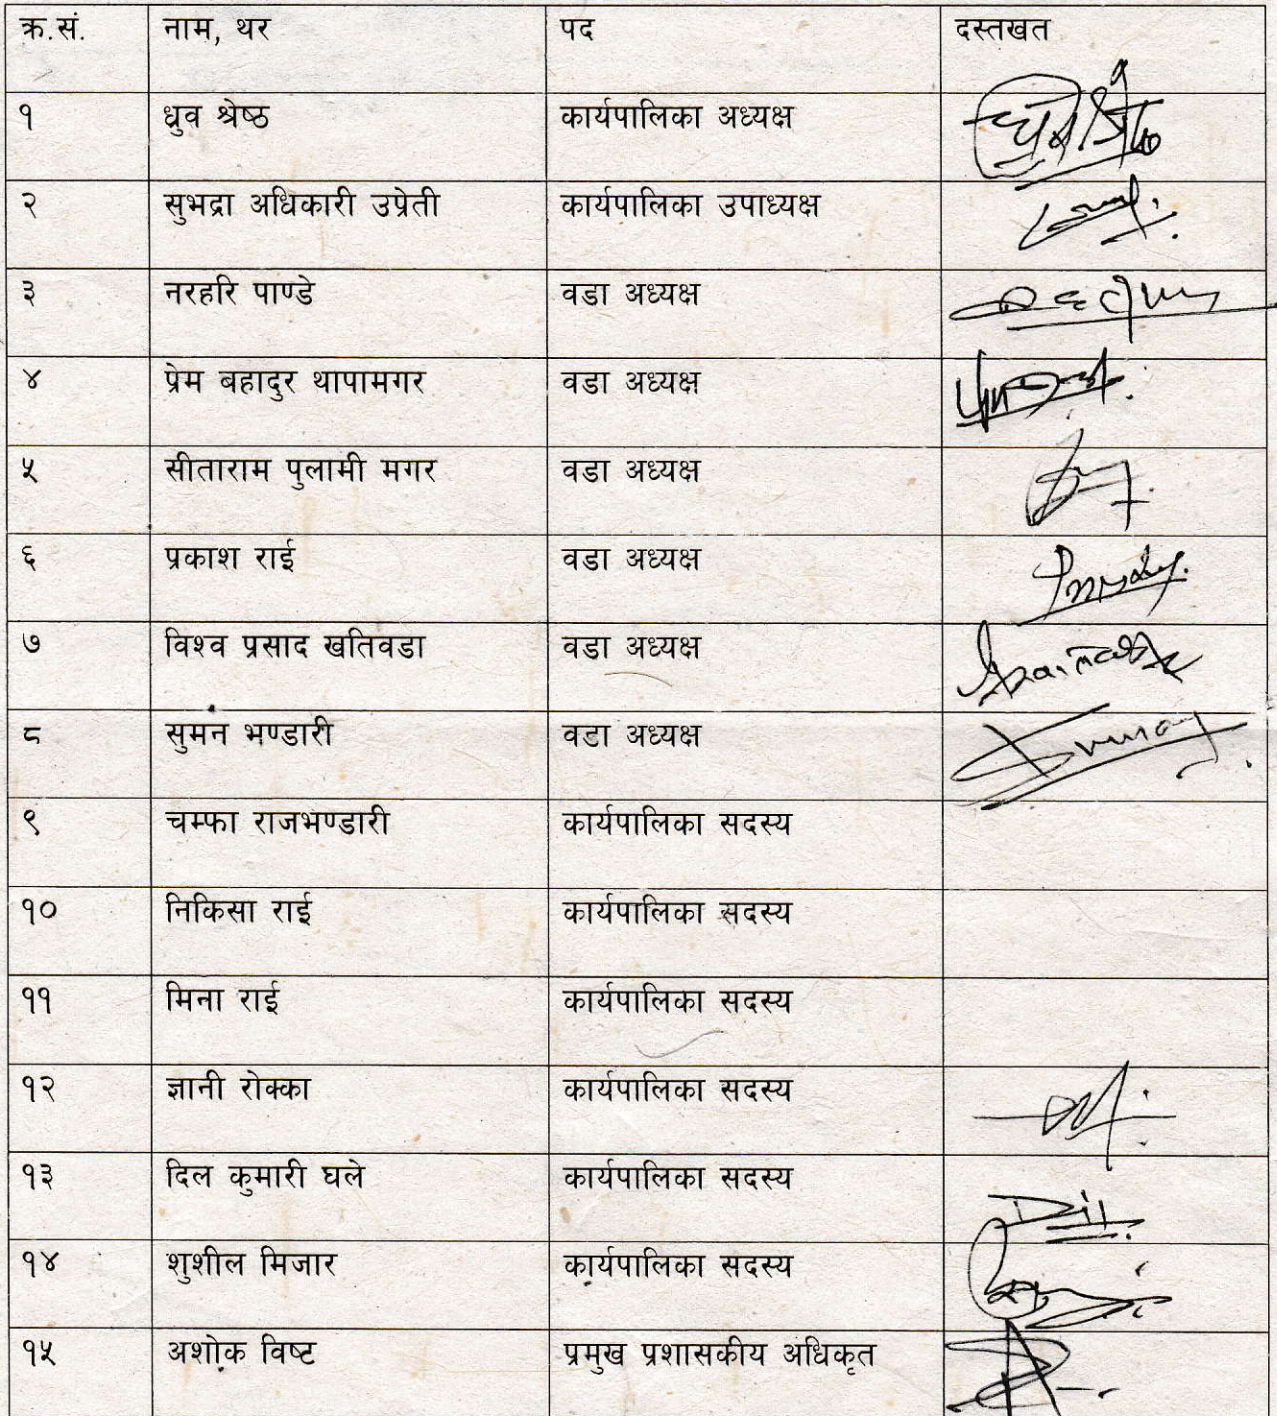 क्र.सं. नाम, थर पद दस्तखत
१ ध्रुव श्रेष्ठ कार्यपालिका अध्यक्ष
२ सुभद्रा अधिकारी उप्रेती कार्यपालिका उपाध्यक्ष
३ नरहरि पाण्डे वडा अध्यक्ष
४ प्रेम बहादुर थापामगर वडा अध्यक्ष
५ सीताराम पुलामी मगर वडा अध्यक्ष
६ प्रकाश राई वडा अध्यक्ष
७ विश्व प्रसाद खतिवडा वडा अध्यक्ष
८ सुमन भण्डारी वडा अध्यक्ष
९ चम्फा राजभण्डारी कार्यपालिका सदस्य
१० निकिसा राई कार्यपालिका सदस्य
११ मिना राई कार्यपालिका सदस्य
१२ ज्ञानी रोक्का कार्यपालिका सदस्य
१३ दिल कुमारी घले कार्यपालिका सदस्य Dil
१४ शुशील मिजार कार्यपालिका सदस्य
१५ अशोक विष्ट प्रमुख प्रशासकीय अधिकृत